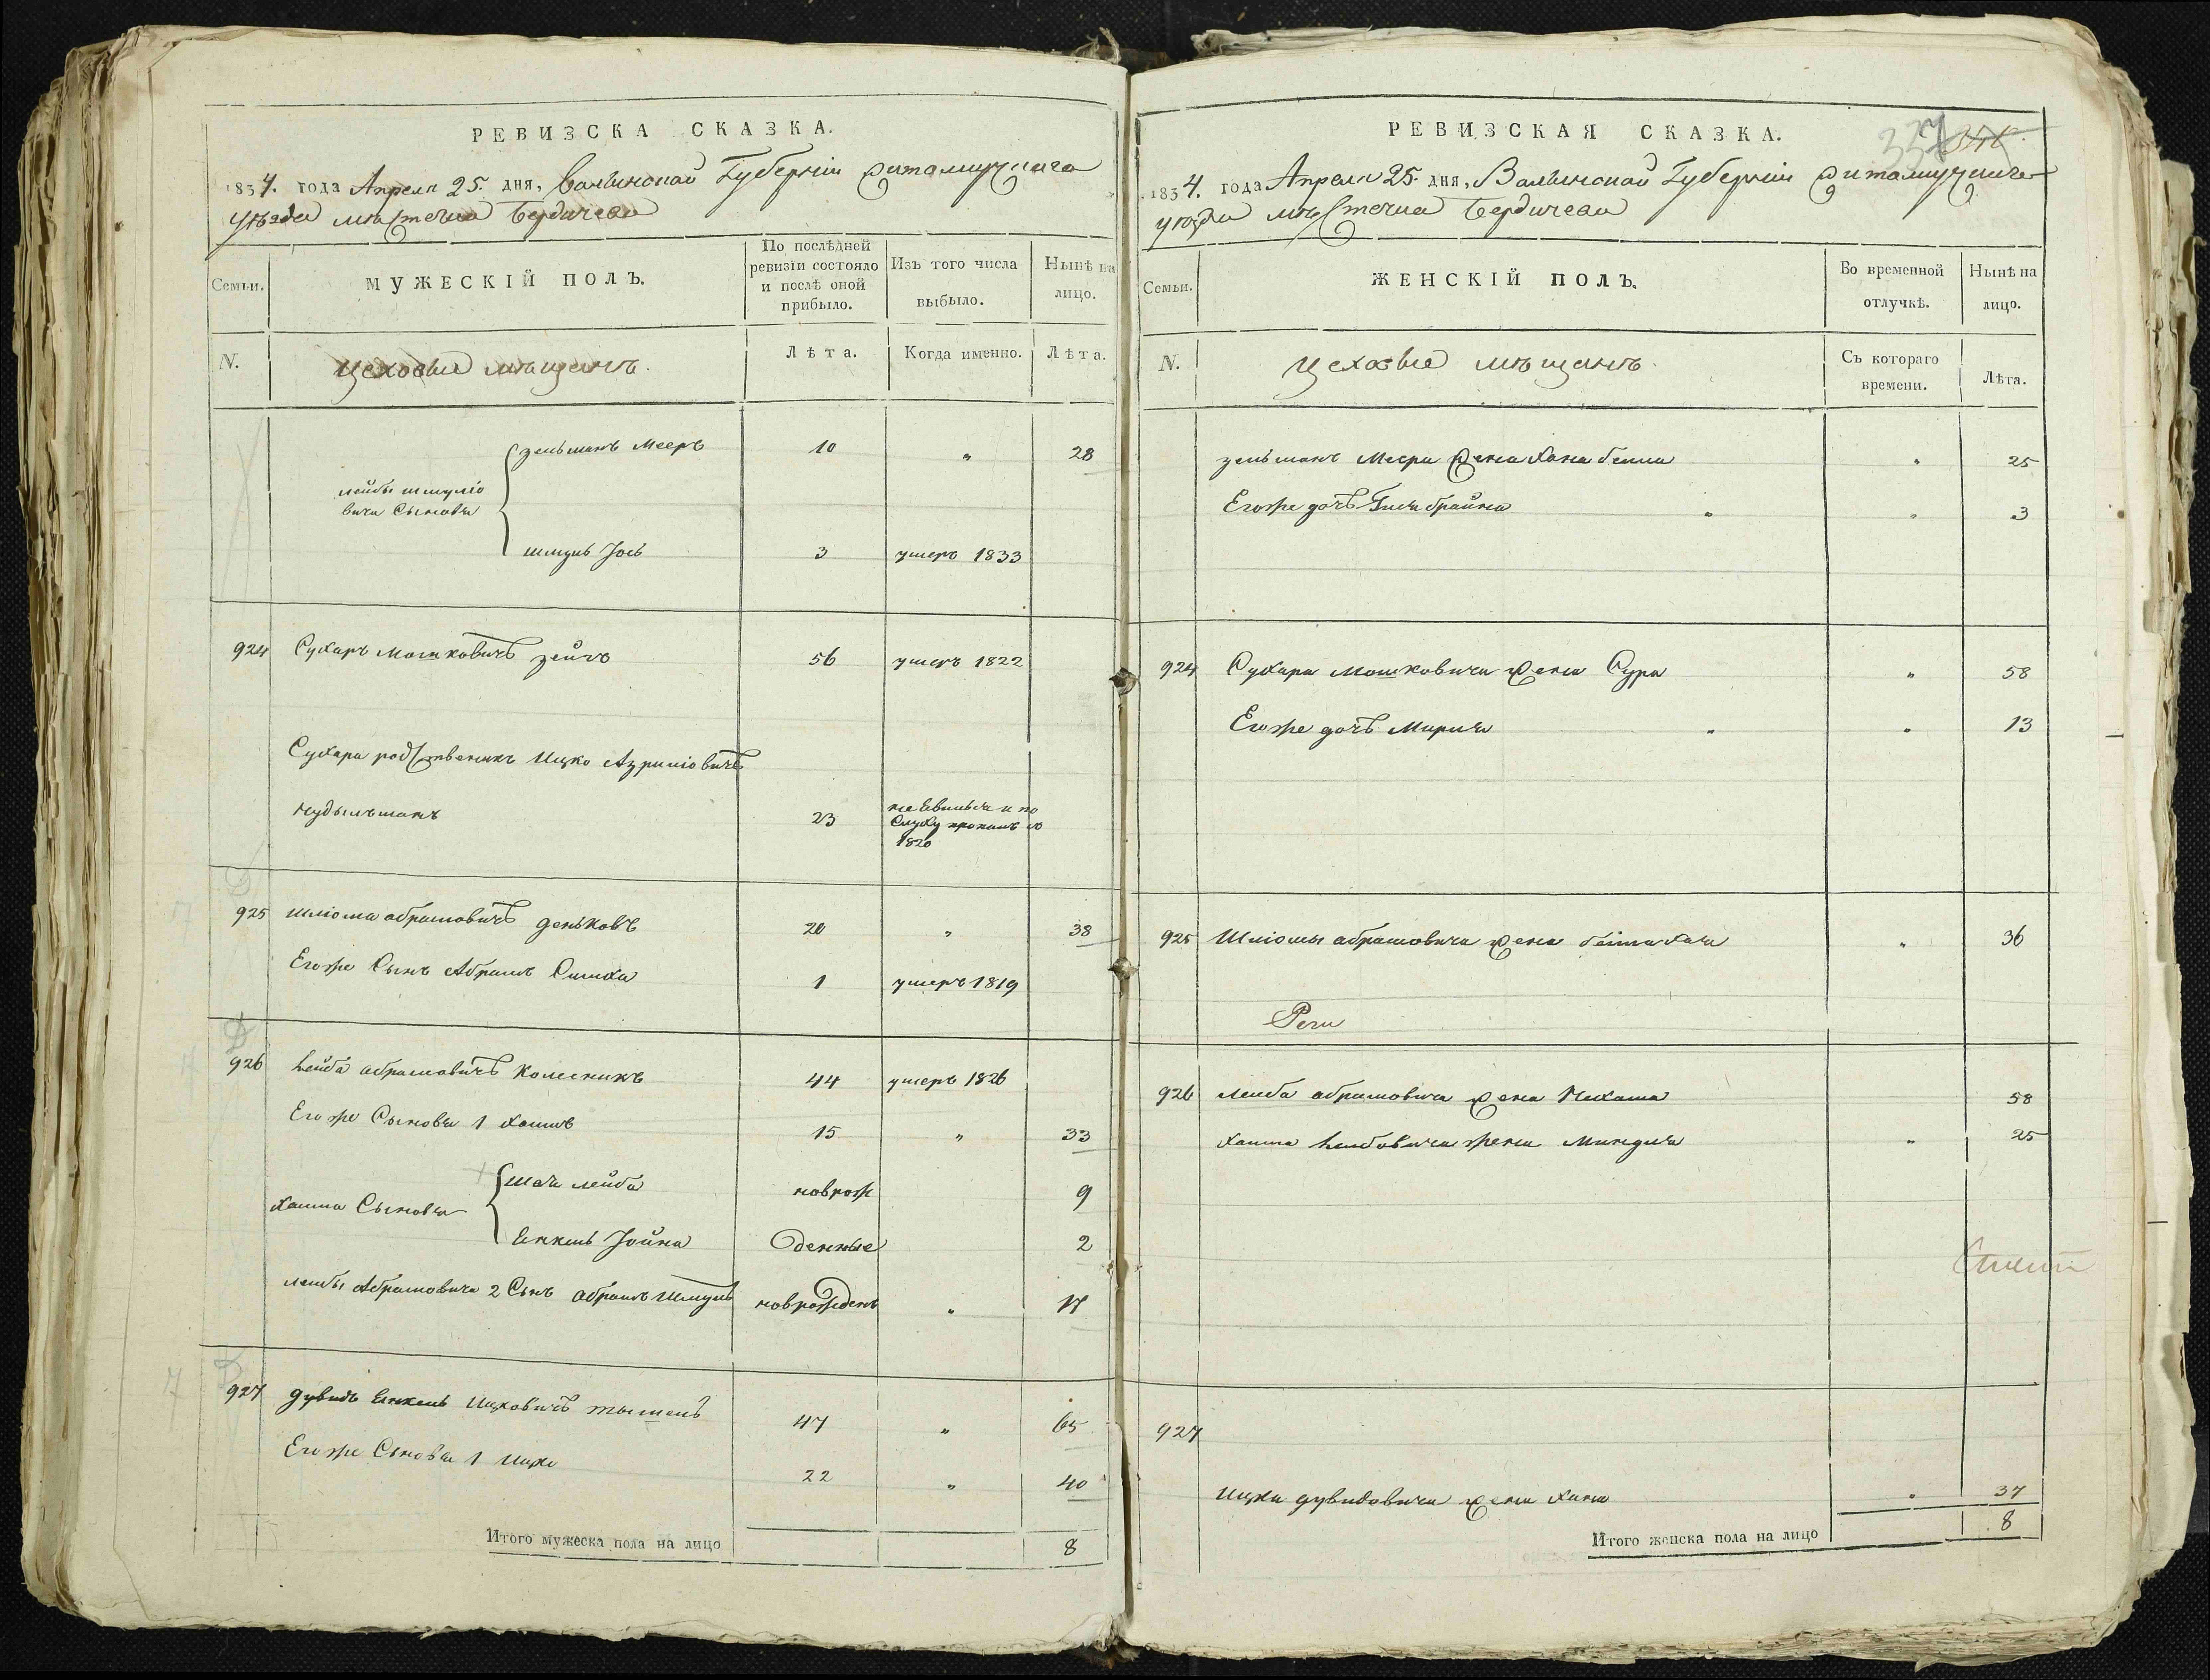 РЕВИЗСКА СКАЗКА.
1834. года Апреля 25. дня, Волынской Губернии Житомирскаго
уѣзда мѣстечка Бердичева
Семьи.
МУЖЕСКІЙ ПОЛЪ.
По послѣдней ревизіи состояло и послѣ оной прибыло.
Изъ того числа выбыло.
Нынѣ на лицо.
N.
Цеховые мѣщанъ.
Лѣта.
Когда именно.
Лѣта.
зельманъ Мееръ 10 " 28
лейбы шмуліо
вича Сыновья
шмуль Іось 3 умеръ 1833
924 Сухаръ Мошковичъ зейгъ 56 умеръ 1822
Сухара родственикъ Ицко Азриліовичъ
Нудыльманъ 23
1820
925 Шліома абрамовичъ деньковъ 20 " 38
Егоже Сынъ Абрамъ Симха 1 умеръ 1819
926 Лейба абрамовичъ Колесникъ 44 умеръ 1826
Егоже Сыновья 1 хаимъ 15 " 33
хаима Сыновья
лейба новрож 9
Янкель Іойна денные 2
лейбы Абрамовича 2 Сынъ абрамъ Шмуль новрожденъ " 17
927 дувидъ Янкель Ицковичъ 47 " 65
Егоже Сыновья 1 Ицко 22 " 40
Итого мужеска пола на лицо 8
РЕВИЗСКАЯ СКАЗКА.
337
1834. года Апреля 25. дня, Волынской Губернии Житомирскаго
уѣзда мѣстечка Бердичева
Семьи.
ЖЕНСКІЙ ПОЛЪ.
Во временной отлучкѣ.
Нынѣ на лицо.
N.
Цеховые мѣщанъ.
Съ котораго времени.
Лѣта.
зельманъ Меера жена Хана бейла " 25
Егоже дочь брайна " " 3
924 Сухара Мошковича жена Сура " 58
Егоже дочь Мирия " " 13
925 Шліомы абрамовича жена бейла хая " 36
926 лейба абрамовича жена Нихама 58
хаима Лейбовича жена Миндля " 25
927
Ицка дувидовича жена хана " 37
Итого женска пола на лицо 8